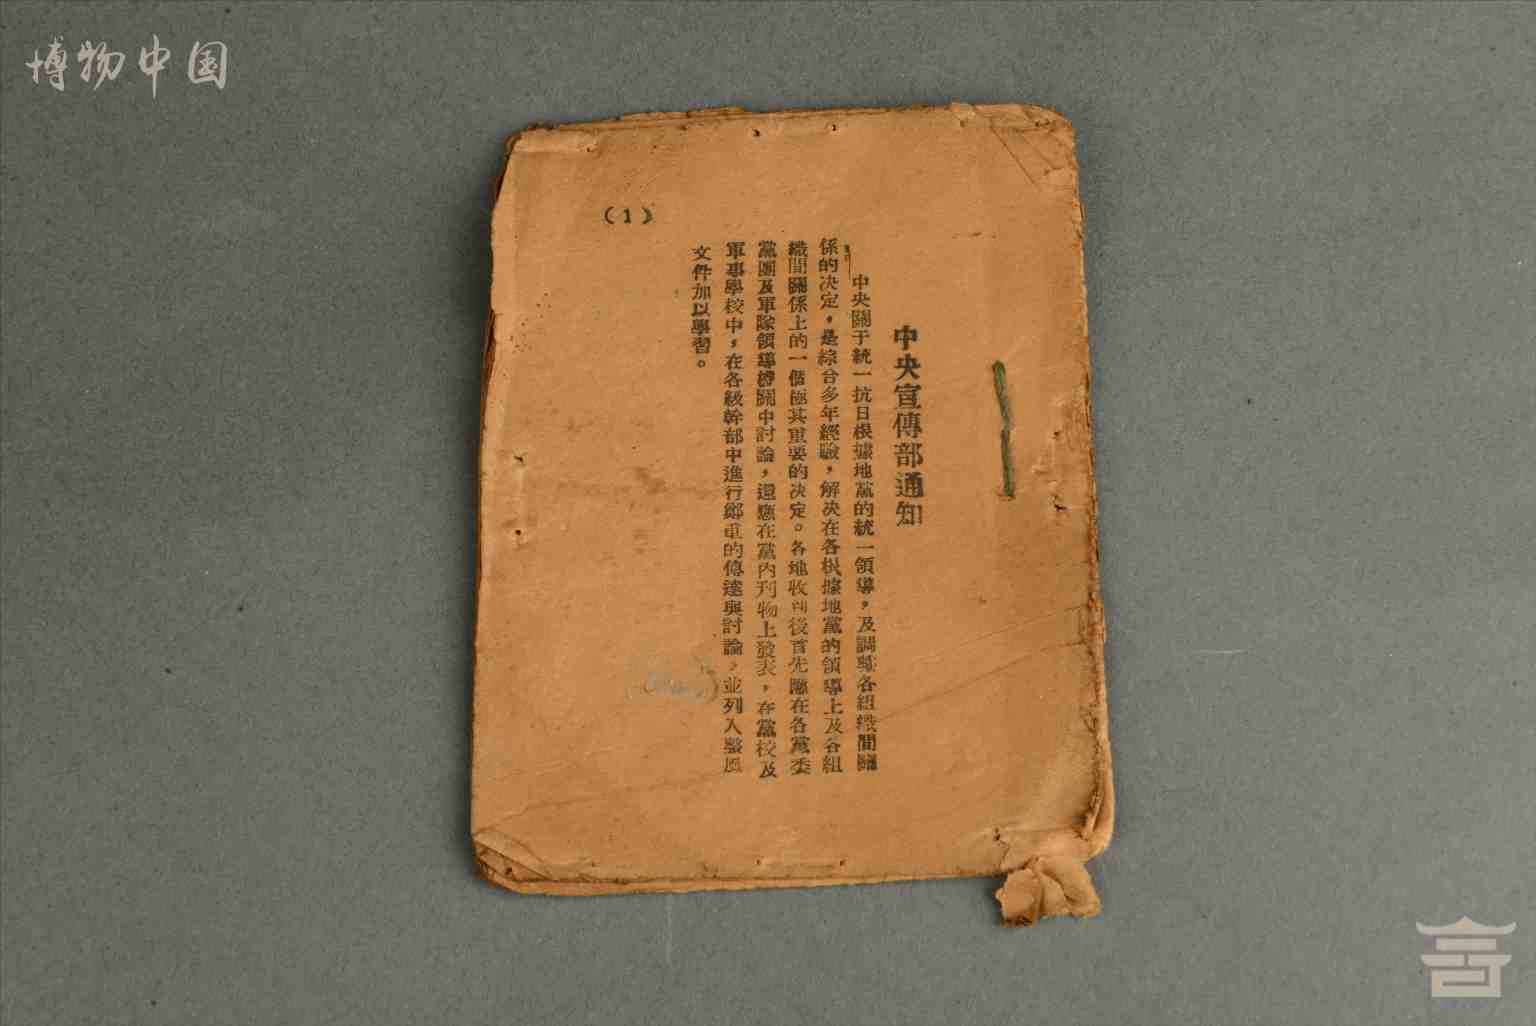 博物中国
中央宣傳部通知
中央關于統一抗日根據地黨的統一領導，及調整各組織間關
係的决定，是綜合多年經驗，解决在各根據地黨的領導上及各組
織間關係上的一個極其重要的决定。各地收到後首先應在各黨委
黨團及軍隊領導機關中討論，還應在黨內刊物上發表，在黨校及
軍事學校中，在各級幹部中進行鄭重的傳達與討論，並列入整風
文件加以學習。
（1）